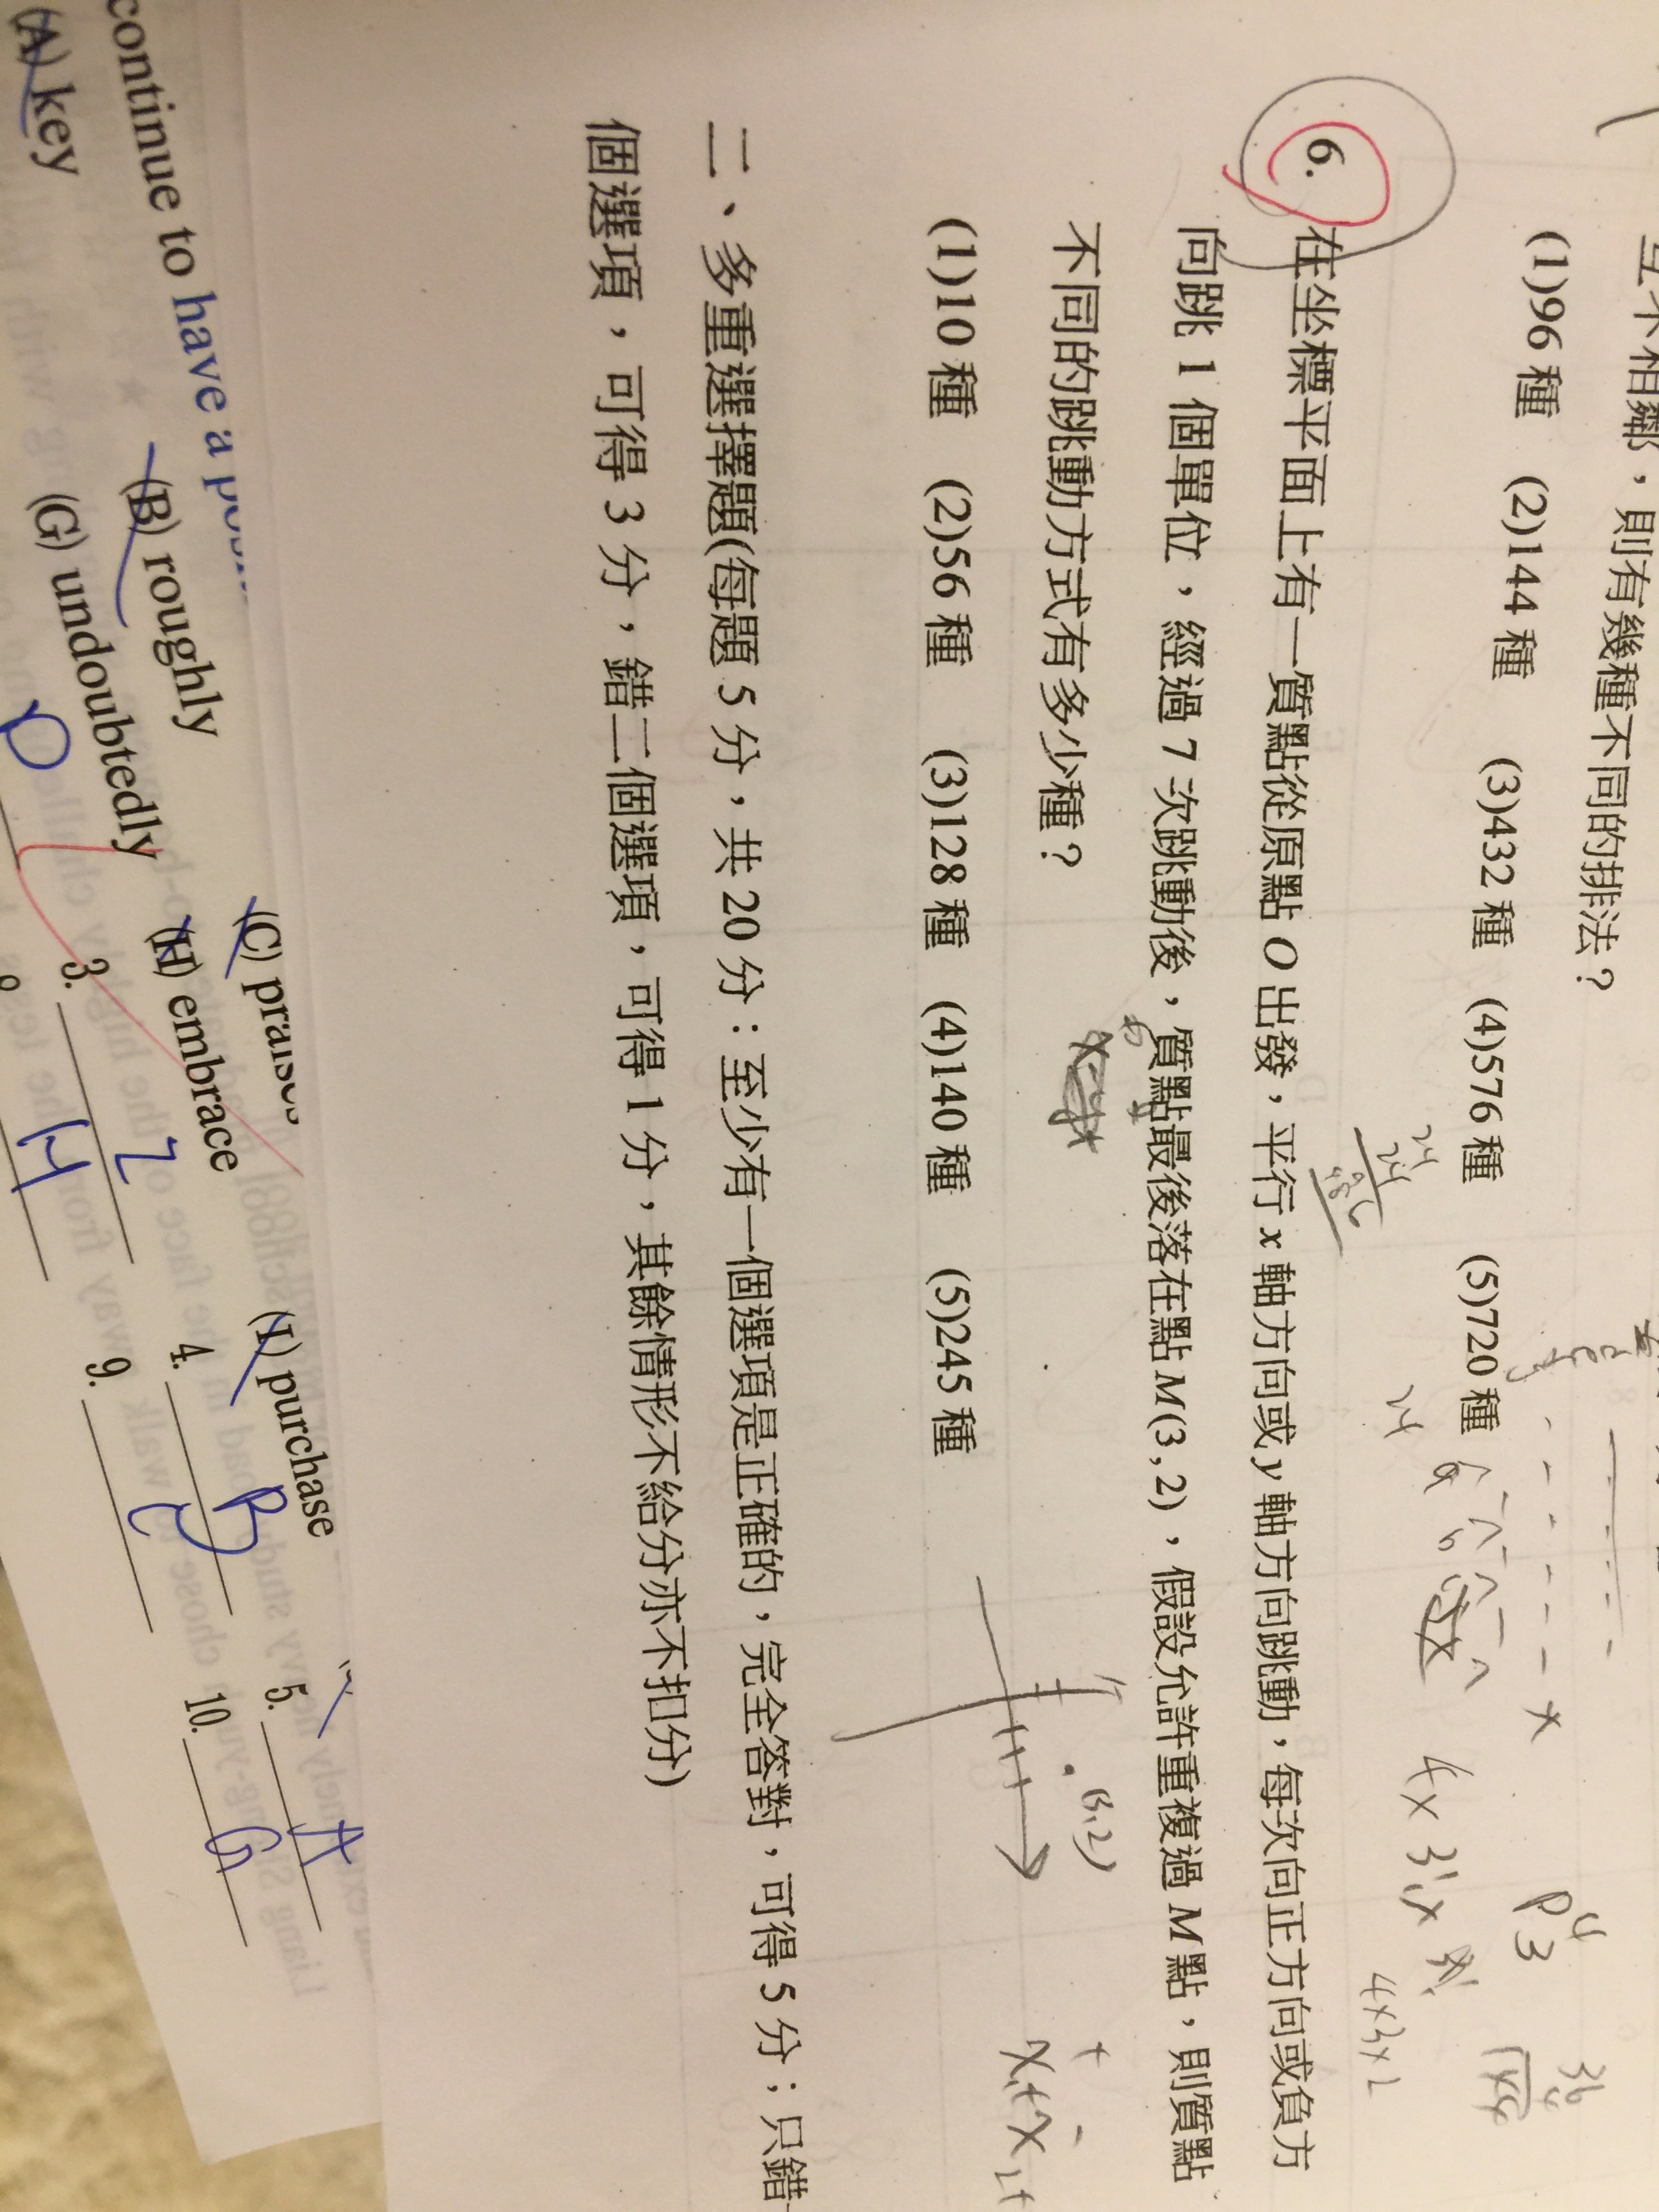 互不相鄰,則有幾種不同的排法?
(1)96 種 (2)144 種 (3)432 種 (4)576 種 (5)720 種
6. 在坐標平面上有一質點從原點 O 出發,平行 x 軸方向或 y 軸方向跳動,每次向正方向或負方
向跳 1 個單位,經過 7 次跳動後,質點最後落在點 M(3,2),假設允許重複過 M 點,則質點
不同的跳動方式有多少種?
(1)10 種 (2)56 種 (3)128 種 (4)140 種 (5)245 種
(3,2)
24
24
24
4x3x2
二、多重選擇題(每題 5 分,共 20 分:至少有一個選項是正確的,完全答對,可得 5 分;只錯一
個選項,可得 3 分,錯二個選項,可得 1 分,其餘情形不給分亦不扣分)
continue to have a
(A) key (B) roughly (C) praises
(G) undoubtedly (H) embrace (I) purchase
3. 4. B 5. A
H 9. C 10. G